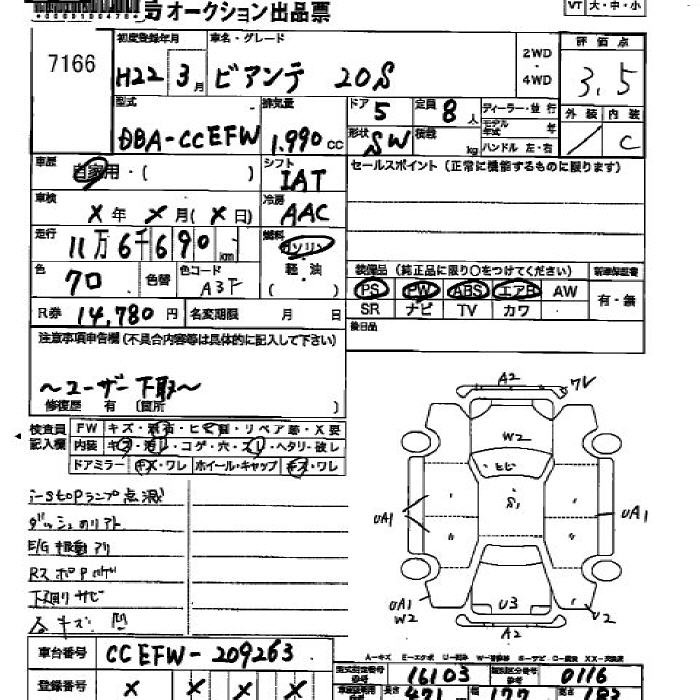 オークション出品票
VT 大・中・小
7166
初度登録年月 車名・グレード
H22 3月 ビアンテ 20S
2WD
・
4WD
評価点
3.5
型式 排気量 ドア 定員
DBA-CCEFW 1.990cc 5 8人
ディーラー・並行
形状 SW 積載 kg
モデル年式 年
ハンドル 左・右
外装 内装
/ C
車歴 自家用・( )
シフト IAT
セールスポイント(正常に機能するものに限ります)
車検 X年 X月(X日)
冷房 AAC
走行 11万6千690km
燃料 ガソリン
軽・油
( )
色 70 色替 色コード A3F
装備品(純正品に限り○をつけてください) 新車保証書
PS PW ABS エアB AW 有・無
SR ナビ TV カワ
R券 14,780円 名変期限 月 日
後日品
注意事項申告欄(不具合内容等は具体的に記入して下さい)
~ユーザー下取~
修復歴 有 〔箇所 〕
検査員記入欄
FW キズ・飛石・ヒビ割・リペア跡・X要
内装 キズ・汚レ・コゲ・穴・スレ・ヘタリ・破レ
ドアミラー キズ・ワレ ホイール・キャップ キズ・ワレ
i-stopランプ点滅
ダッシュのリアト
E/G振動アリ
下廻りサビ
A2 ワレ
W2
ヒビ
S1
UA1 UA1
UA1
W2
U3 U2
A2
A-キズ E-エクボ U-凹み W-補修跡 S-サビ C-腐食 XX-交換済
車台番号 CCEFW-209263
型式指定番号 16103 類別区分番号 0116
登録番号 X X X X
長さ 471 幅 177 高 183